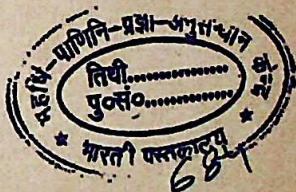 महर्षि-पाणिनि-प्रज्ञा-अनुसन्धान केन्द्र
तिथी..................
पु०सं०..................
★ भारती पुस्तकालय ★
684